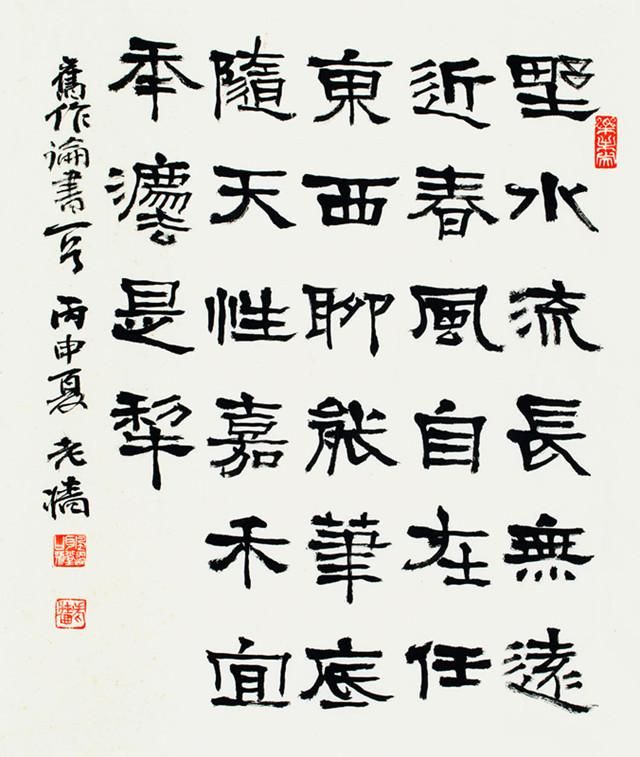 野水流長無遠
近春風自在任
東西聊能筆底
隨天性嘉禾宜
秊灋是犁
舊作論書一首 丙申夏 老墻